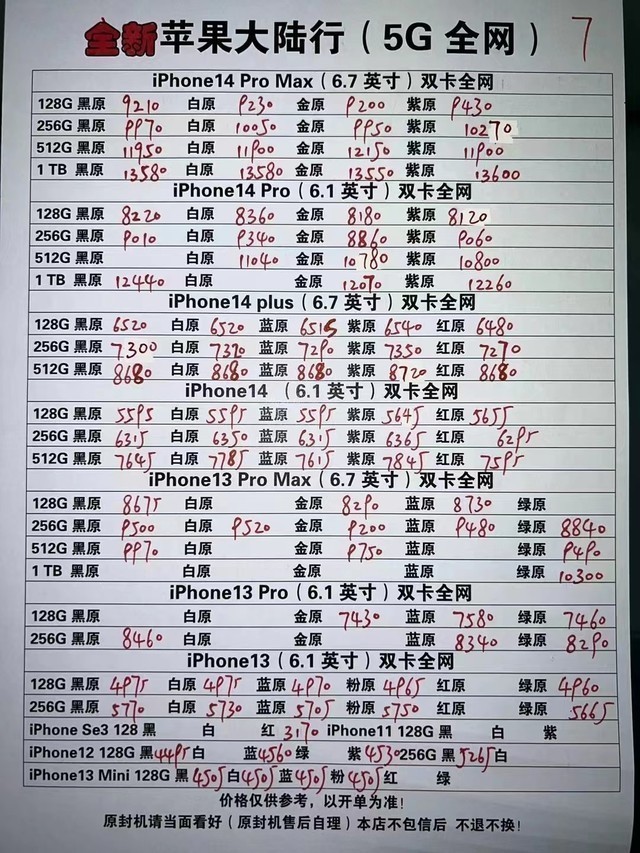 全新苹果大陆行（5G 全网） 7
iPhone14 Pro Max（6.7 英寸）双卡全网
128G 黑原 9210 白原 9230 金原 9200 紫原 9430
256G 黑原 9970 白原 10050 金原 9950 紫原 10270
512G 黑原 11950 白原 11900 金原 12150 紫原 11900
1 TB 黑原 13580 白原 13580 金原 13550 紫原 13600
iPhone14 Pro（6.1 英寸）双卡全网
128G 黑原 8220 白原 8360 金原 8180 紫原 8120
256G 黑原 9010 白原 9340 金原 8860 紫原 9060
512G 黑原 白原 11040 金原 10780 紫原 10800
1 TB 黑原 12440 白原 金原 12070 紫原 12260
iPhone14 plus（6.7 英寸）双卡全网
128G 黑原 6520 白原 6520 蓝原 6515 紫原 6540 红原 6480
256G 黑原 7300 白原 7370 蓝原 7290 紫原 7350 红原 7270
512G 黑原 8680 白原 8680 蓝原 8680 紫原 8720 红原 8680
iPhone14 （6.1 英寸）双卡全网
128G 黑原 5595 白原 5595 蓝原 5595 紫原 5645 红原 5655
256G 黑原 6315 白原 6350 蓝原 6315 紫原 6365 红原 6295
512G 黑原 7645 白原 7785 蓝原 7615 紫原 7845 红原 7595
iPhone13 Pro Max（6.7 英寸）双卡全网
128G 黑原 8675 白原 金原 8290 蓝原 8730 绿原
256G 黑原 9500 白原 9520 金原 9200 蓝原 9480 绿原 8840
512G 黑原 9970 白原 金原 9750 蓝原 绿原 9490
1 TB 黑原 白原 金原 蓝原 绿原 10300
iPhone13 Pro（6.1 英寸）双卡全网
128G 黑原 白原 金原 7430 蓝原 7580 绿原 7460
256G 黑原 8460 白原 金原 蓝原 8340 绿原 8290
iPhone13（6.1 英寸）双卡全网
128G 黑原 4975 白原 4975 蓝原 4970 粉原 4965 红原 绿原 4960
256G 黑原 5770 白原 5730 蓝原 5705 粉原 5750 红原 绿原 5665
iPhone Se3 128 黑 白 红 3170 iPhone11 128G 黑 白 紫
iPhone12 128G 黑 4495 白 蓝 4560 绿 紫 4530 256G 黑 5265 白
iPhone13 Mini 128G 黑 4505 白 4505 蓝 4505 粉 4505 红 绿
价格仅供参考，以开单为准！
原封机请当面看好（原封机售后自理）本店不包信后 不退不换！